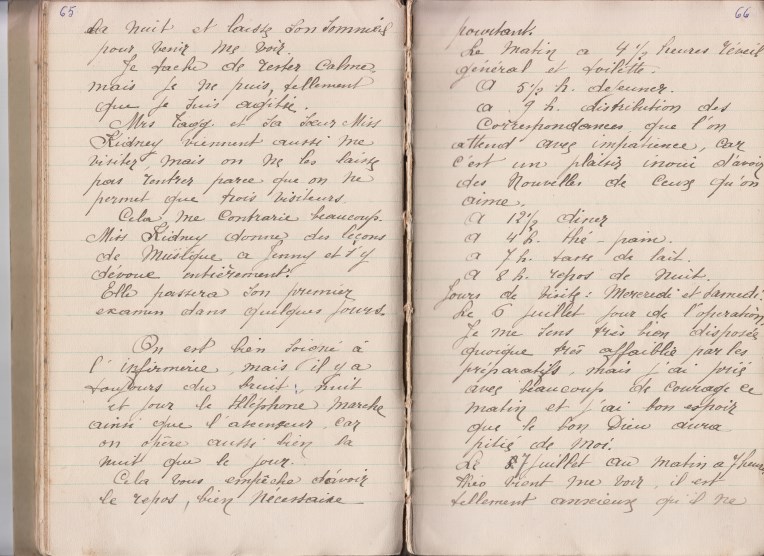 65
la nuit et laisse son sommeil
pour venir me voir.
Je tache de rester calme,
mais je ne puis, tellement
que je suis agitée.
Mrs Tagg et sa sœur Miss
Kidney viennent aussi me
visiter, mais on ne les laisse
pas rentrer parce que on ne
permet que trois visiteurs.
Cela me contrarie beaucoup.
Miss Kidney donne des leçons
de Musique a Jenny et s'y
dévoue entièrement.
Elle passera son premier
examen dans quelques jours.
On est bien soigné à
l'infirmerie, mais il y a
toujours du bruit, nuit
et jour le téléphone marche
ainsi que l'asenseur, car
on opère aussi bien la
nuit que le jour.
Cela vous empêche d'avoir
le repos, bien nécessaire
66
pourtant.
Le matin a 4 1/2 heures réveil
général et toilette.
A 5 1/2 h. dejeuner.
a 9 h. distribution des
Correspondances, que l'on
attend avec impatience, car
c'est un plaisir inoui d'avoir
des Nouvelles de Ceux qu'on
aime.
A 12 1/2 diner
A 4 h. thé - pain.
a 7 h. tasse de lait.
A 8 h. repos de nuit.
Jours de visite : Mercredi et Samedi.
Le 6 juillet jour de l'operation,
Je me sens très bien disposée
quoique très affaiblie par les
préparatifs, mais j'ai prié
avec beaucoup de courage ce
matin et j'ai bon espoir
que le bon Dieu aura
pitié de Moi.
Le 7 juillet au matin a 7 heures
Théo vient me voir, il est
tellement anxieux qu'il ne